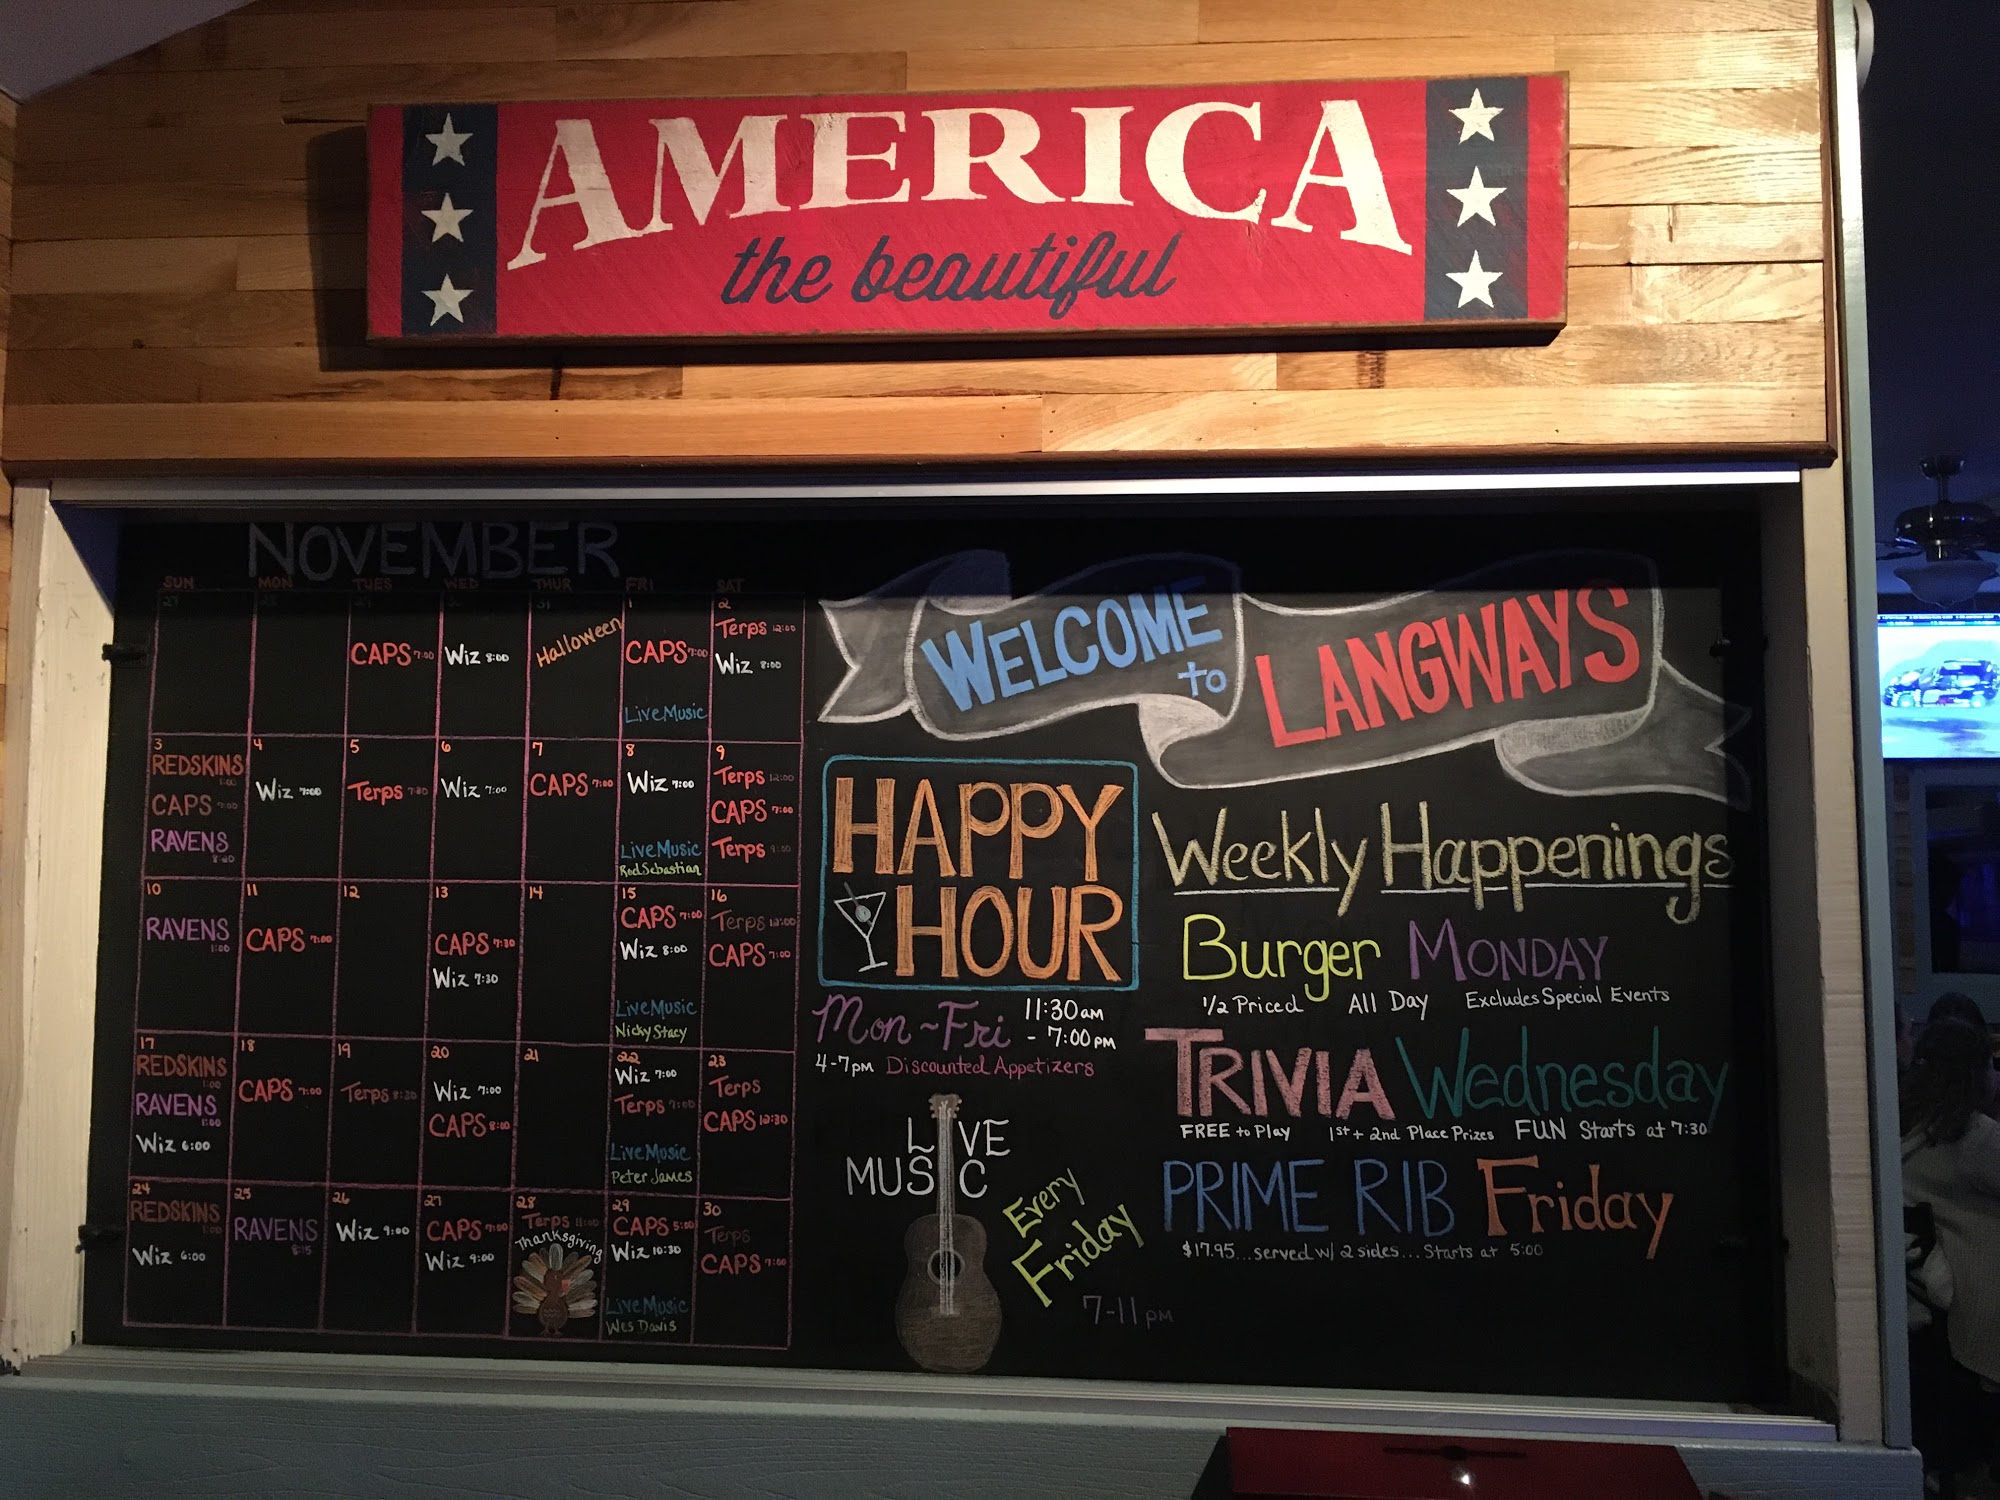 AMERICA
the beautiful
NOVEMBER
SUN MON TUES WED THUR FRI SAT
27 28 29 30 31 1 2
CAPS 7:00
Wiz 8:00
Halloween
CAPS 7:00
Live Music
Terps 12:00
Wiz 8:00
3 4 5 6 7 8 9
REDSKINS
1:00
CAPS 7:00
RAVENS
8:20
Wiz 7:00
Terps 7:30
Wiz 7:00
CAPS 7:00
Wiz 7:00
Live Music
Rod Sebastian
Terps 12:00
CAPS 7:00
Terps 9:00
10 11 12 13 14 15 16
RAVENS
1:00
CAPS 7:00
CAPS 7:30
Wiz 7:30
CAPS 7:00
Wiz 8:00
Live Music
Nicky Stacy
Terps 12:00
CAPS 7:00
17 18 19 20 21 22 23
REDSKINS
1:00
RAVENS
1:00
Wiz 6:00
CAPS 7:00
Terps 8:30
Wiz 7:00
CAPS 8:00
Wiz 7:00
Terps 7:00
Live Music
Peter James
Terps
CAPS 12:30
24 25 26 27 28 29 30
REDSKINS
1:00
Wiz 6:00
RAVENS
8:15
Wiz 9:00
CAPS 7:00
Wiz 9:00
Terps 11:00
Thanksgiving
CAPS 5:00
Wiz 10:30
Live Music
Wes Davis
Terps
CAPS 7:00
WELCOME
to
LANGWAYS
HAPPY
HOUR
Mon-Fri 11:30am
- 7:00pm
4-7pm Discounted Appetizers
LIVE
MUSIC
Every
Friday
7-11pm
Weekly Happenings
Burger MONDAY
1/2 Priced All Day Excludes Special Events
TRIVIA Wednesday
FREE to Play 1st + 2nd Place Prizes FUN Starts at 7:30
PRIME RIB Friday
$17.95...served w/ 2 sides...Starts at 5:00